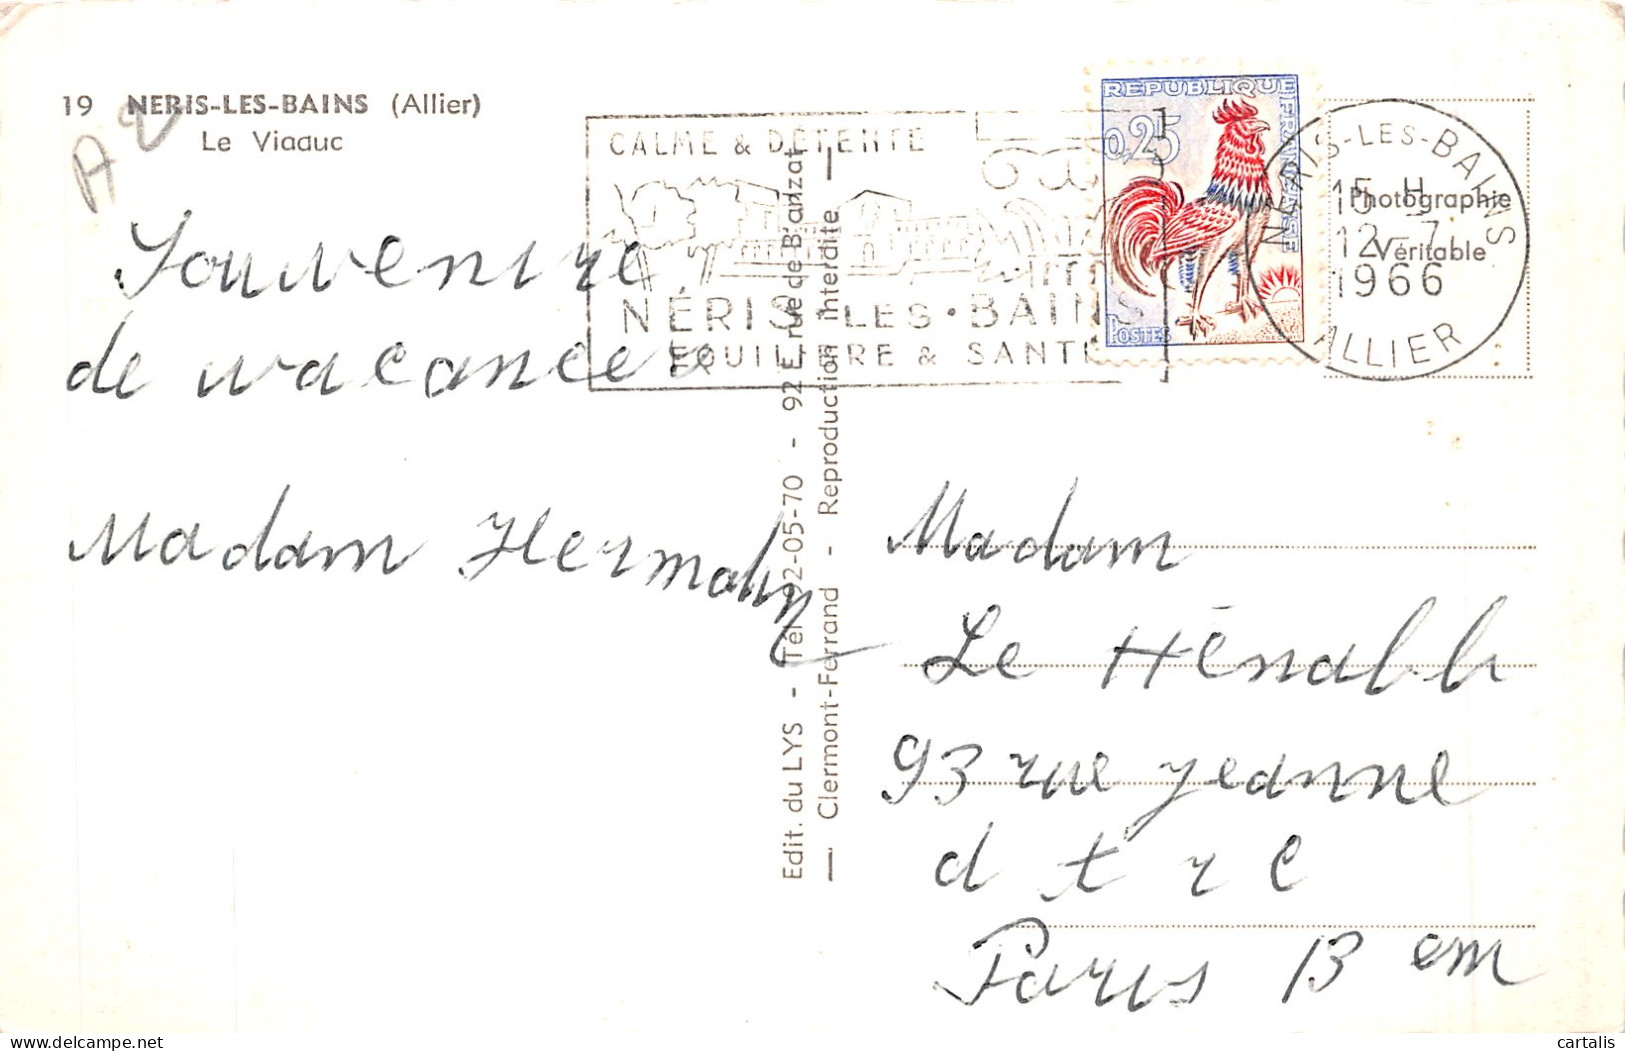 19 NERIS-LES-BAINS (Allier)
Le Viaduc
A2
Souvenire
de vacances
Madam Hermany
CALME & DÉTENTE
NÉRIS-LES-BAINS
EQUILIBRE & SANTÉ
REPUBLIQUE FRANÇAISE
0,25
POSTES
NERIS-LES-BAINS
15 H
12-7
1966
ALLIER
Photographie
Véritable
Edit. du LYS - Tél. 92-05-70 - 92 E, rue de B'anzat
— Clermont-Ferrand - Reproduction interdite —
Madam
Le Hénabb
93 rue jeanne
d t r c
Paris 13 em
cartalis
delcampe.net